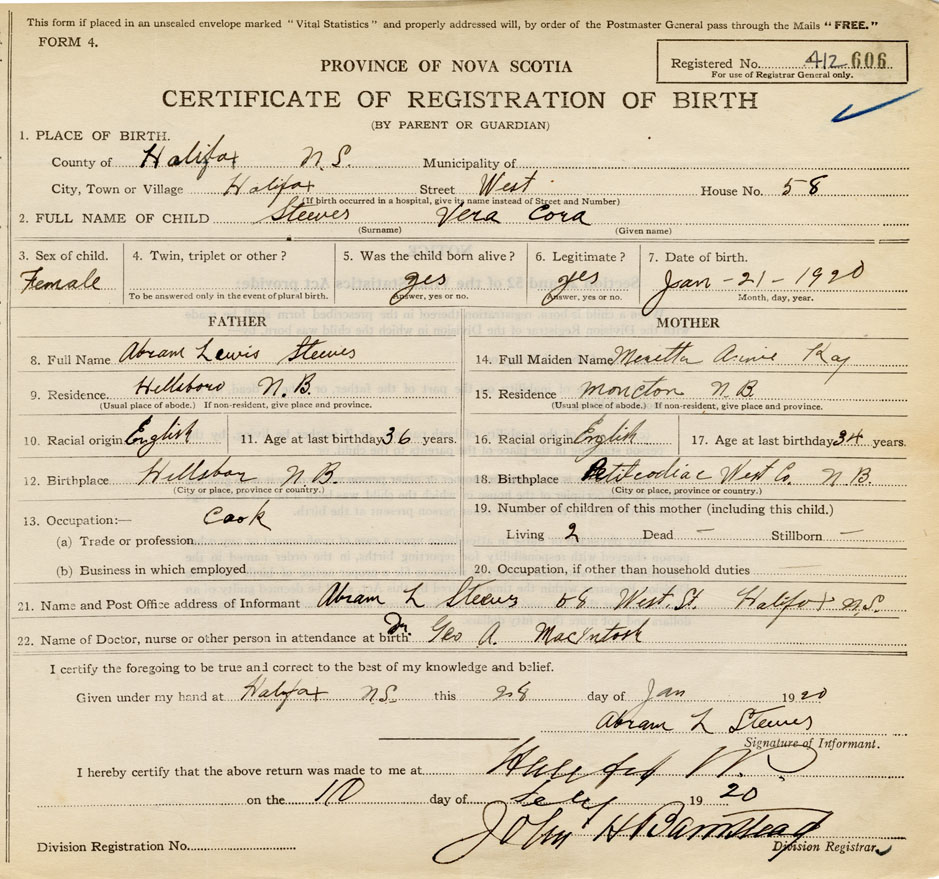 This form if placed in an unsealed envelope marked "Vital Statistics" and properly addressed will, by order of the Postmaster General pass through the Mails "FREE."
FORM 4.
Registered No. 412 606
For use of Registrar General only.
PROVINCE OF NOVA SCOTIA
CERTIFICATE OF REGISTRATION OF BIRTH
(BY PARENT OR GUARDIAN)
1. PLACE OF BIRTH.
County of Halifax N.S. Municipality of
City, Town or Village Halifax Street West House No. 58
(If birth occurred in a hospital, give its name instead of Street and Number)
2. FULL NAME OF CHILD Steeves Vera Cora
(Surname) (Given name)
3. Sex of child. 4. Twin, triplet or other? 5. Was the child born alive? 6. Legitimate? 7. Date of birth.
Female yes yes Jan-21-1920
To be answered only in the event of plural birth. Answer, yes or no. Answer, yes or no. Month, day, year.
FATHER MOTHER
8. Full Name Abram Lewis Steeves 14. Full Maiden Name Kay
9. Residence. Hillsboro N.B. 15. Residence Moncton N B
(Usual place of abode.) If non-resident, give place and province. (Usual place of abode.) If non-resident, give place and province.
10. Racial origin English 11. Age at last birthday 36 years. 16. Racial origin English 17. Age at last birthday 34 years.
12. Birthplace N.B. 18. Birthplace Petitcodiac West Co. N.B.
(City or place, province or country.) (City or place, province or country.)
13. Occupation:— Cook 19. Number of children of this mother (including this child.)
(a) Trade or profession Living 2 Dead — Stillborn —
(b) Business in which employed 20. Occupation, if other than household duties
21. Name and Post Office address of Informant Abram L Steeves 58 West. St. Halifax N.S.
22. Name of Doctor, nurse or other person in attendance at birth. Dr. Geo A. MacIntosh
I certify the foregoing to be true and correct to the best of my knowledge and belief.
Given under my hand at Halifax N.S. this 28 day of Jan 1920
Abram L Steeves
Signature of Informant.
I hereby certify that the above return was made to me at
on the 10 day of 1920
John H Barnstead
Division Registration No. Division Registrar